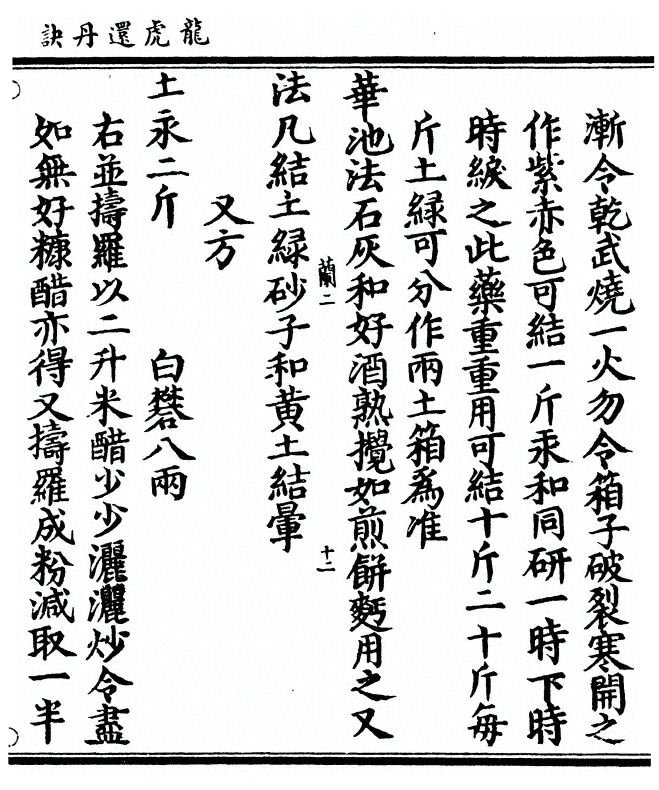 龍虎還丹訣
漸令乾武燒一火勿令箱子破裂寒開之
作紫赤色可結一斤汞和同研一時下時
時綟之此藥重重用可結十斤二十斤每
斤土緑可分作兩土箱爲准
華池法石灰和好酒熟攪如煎餅麫用之又
蘭二
十二
法凡結土緑砂子和黄土結暈
又方
土汞二斤 白礬八兩
右並擣羅以二升米醋少少灑灑炒令盡
如無好糠醋亦得又擣羅成粉減取一半